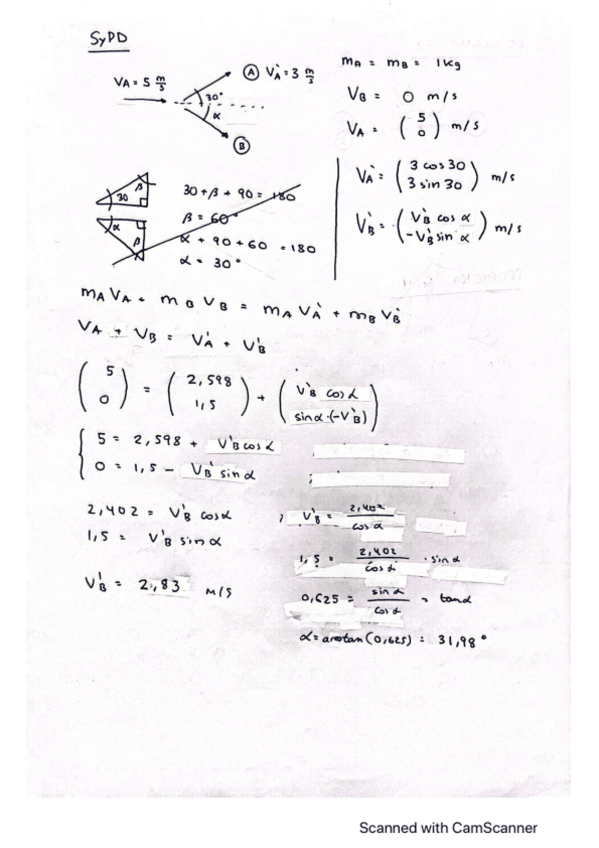 SyPD
VA = 5 m/s
Ⓐ V'A = 3 m/s
30°
α
Ⓑ
mA = mB = 1 kg
VB = 0 m/s
VA = (5 0) m/s
V'A = (3 cos 30 3 sin 30) m/s
V'B = (V'B cos α -V'B sin α) m/s
30 β
α β
30 + β + 90 = 180
β = 60°
α + 90 + 60 = 180
α = 30°
mA VA + mB VB = mA V'A + mB V'B
VA + VB = V'A + V'B
(5 0) = (2,598 1,5) + (V'B cos α sin α·(-V'B))
5 = 2,598 + V'B cos α
0 = 1,5 - V'B sin α ;
2,402 = V'B cos α ; V'B = 2,402 / cos α
1,5 = V'B sin α
1,5 = 2,402 / cos α · sin α
V'B = 2,83 m/s
0,625 = sin α / cos α = tan α
α = arctan(0,625) = 31,98°
Scanned with CamScanner